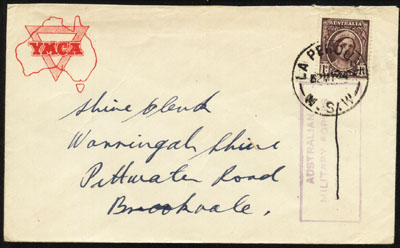 YMCA
AUSTRALIA
LA PEROUSE
N.S.W
AUSTRALIAN
MILITARY
Shire Clerk
Warringah Shire
Pittwater Road
Brookvale.